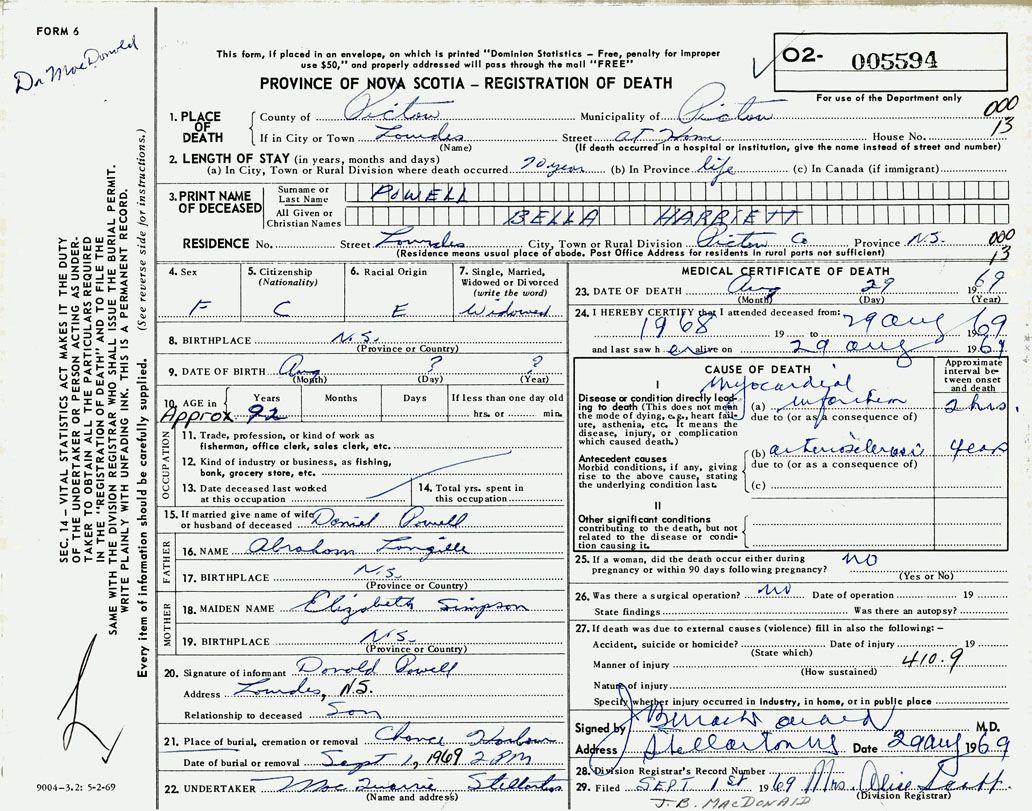 FORM 6
Dr MacDonald
This form, if placed in an envelope, on which is printed "Dominion Statistics - Free, penalty for improper
use $50," and properly addressed will pass through the mail "FREE"
PROVINCE OF NOVA SCOTIA - REGISTRATION OF DEATH
02- 005594
For use of the Department only
000
13
1. PLACE OF DEATH
County of Pictou Municipality of Pictou
If in City or Town Lourdes Street at Home House No.
(Name) (If death occurred in a hospital or institution, give the name instead of street and number)
2. LENGTH OF STAY (in years, months and days)
(a) In City, Town or Rural Division where death occurred 70 years (b) In Province life (c) In Canada (if immigrant)
3. PRINT NAME OF DECEASED
Surname or Last Name POWELL
All Given or Christian Names BELLA HARRIETT
RESIDENCE No. Street Lourdes City, Town or Rural Division Pictou Co Province N.S.
(Residence means usual place of abode. Post Office Address for residents in rural parts not sufficient)
000
13
4. Sex F
5. Citizenship (Nationality) C
6. Racial Origin E
7. Single, Married, Widowed or Divorced (write the word) Widowed
8. BIRTHPLACE N.S.
(Province or Country)
9. DATE OF BIRTH Aug ? ?
(Month) (Day) (Year)
10. AGE in Years Months Days If less than one day old
Approx 92 hrs. or min.
OCCUPATION
11. Trade, profession, or kind of work as
fisherman, office clerk, sales clerk, etc.
12. Kind of industry or business, as fishing,
bank, grocery store, etc.
13. Date deceased last worked
at this occupation
14. Total yrs. spent in
this occupation
15. If married give name of wife
or husband of deceased Daniel Powell
FATHER
16. NAME Abraham Langille
17. BIRTHPLACE N.S.
(Province or Country)
MOTHER
18. MAIDEN NAME Elizabeth Simpson
19. BIRTHPLACE N.S.
(Province or Country)
20. Signature of informant Donald Powell
Address Lourdes, N.S.
Relationship to deceased Son
21. Place of burial, cremation or removal Chance Harbour
Date of burial or removal Sept 1, 1969 2 PM
22. UNDERTAKER Stellarton
(Name and address)
MEDICAL CERTIFICATE OF DEATH
23. DATE OF DEATH Aug 29 1969
(Month) (Day) (Year)
24. I HEREBY CERTIFY that I attended deceased from:
1968 19 to 29 aug 1969
and last saw her alive on 29 aug 1969
CAUSE OF DEATH
Approximate interval between onset and death
I
Disease or condition directly leading
to death (This does not mean
the mode of dying, e.g., heart failure,
asthenia, etc. It means the
disease, injury, or complication
which caused death.)
Myocardial
(a) infarction 2 hrs.
due to (or as a consequence of)
Antecedent causes
Morbid conditions, if any, giving
rise to the above cause, stating
the underlying condition last.
(b) arteriosclerosis years
due to (or as a consequence of)
(c)
II
Other significant conditions
contributing to the death, but not
related to the disease or condition
causing it.
25. If a woman, did the death occur either during
pregnancy or within 90 days following pregnancy? NO
(Yes or No)
26. Was there a surgical operation? NO Date of operation 19
State findings Was there an autopsy?
27. If death was due to external causes (violence) fill in also the following: -
Accident, suicide or homicide? Date of injury 19
(State which)
Manner of injury 410.9
(How sustained)
Nature of injury
Specify whether injury occurred in Industry, in home, or in public place
Signed by M.D.
Address Stellarton NS Date 29 aug 1969
28. Division Registrar's Record Number
29. Filed SEPT 1st 1969 Mrs. Alice
(Division Registrar)
J. B. MACDONALD
SEC. 14 - VITAL STATISTICS ACT MAKES IT THE DUTY
OF THE UNDERTAKER OR PERSON ACTING AS UNDERTAKER
TO OBTAIN ALL THE PARTICULARS REQUIRED
IN THE "REGISTRATION OF DEATH" AND TO FILE THE
SAME WITH THE DIVISION REGISTRAR WHO SHALL ISSUE THE BURIAL PERMIT.
WRITE PLAINLY WITH UNFADING INK. THIS IS A PERMANENT RECORD.
Every item of information should be carefully supplied. (See reverse side for instructions.)
9004-3.2: 5-2-69